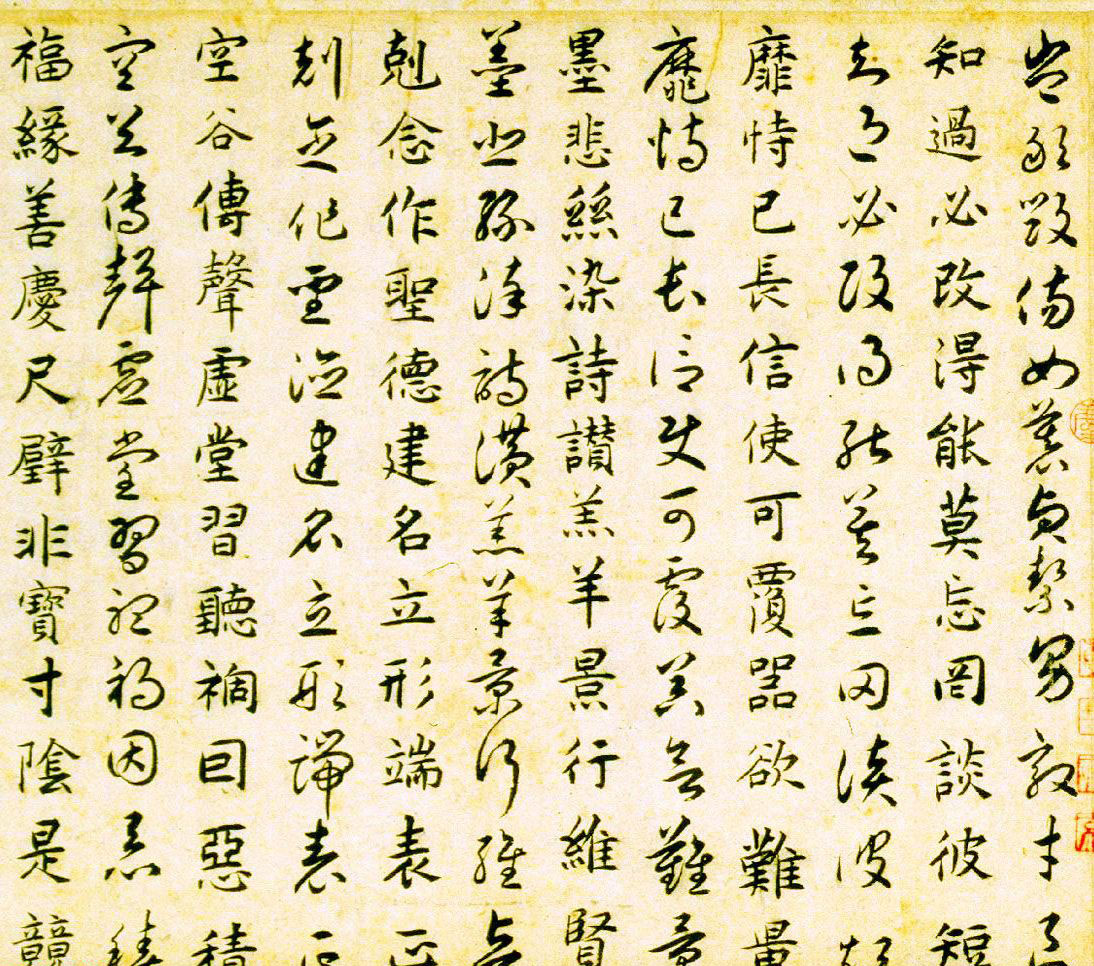 豈敢毀傷女慕貞絜男效才良
知過必改得能莫忘罔談彼短
知過必改得能莫忘罔談彼短
靡恃己長信使可覆器欲難量
靡恃己長信使可覆器欲難量
墨悲絲染詩讚羔羊景行維賢
墨悲絲染詩讚羔羊景行維賢
剋念作聖德建名立形端表正
剋念作聖德建名立形端表正
空谷傳聲虛堂習聽禍因惡積
空谷傳聲虛堂習聽禍因惡積
福緣善慶尺璧非寶寸陰是競